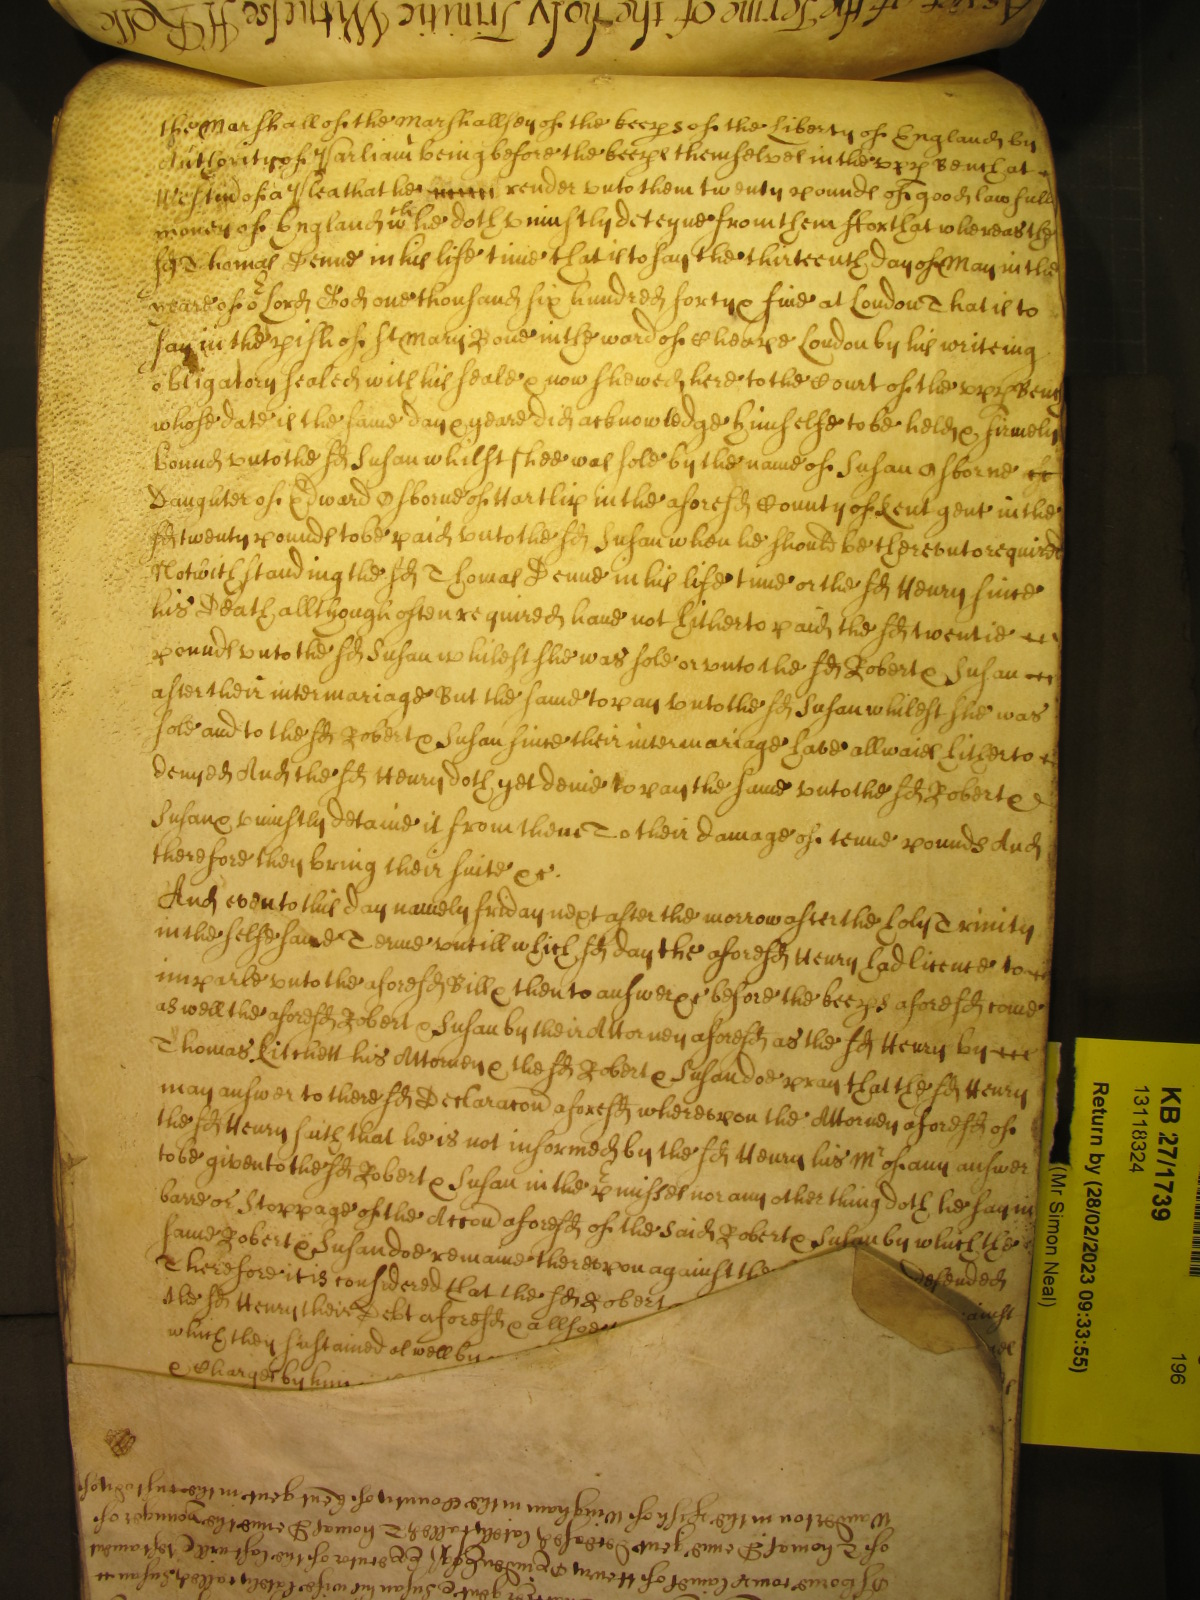 As yet of the Terme of the holy Trinitie Witnesse H Rolle
the Marshall of the Marshallsey of the keeps of the Liberty of England by
Authority of Parliamt being before the keeps themselves in the uppr Bench at
Westmr of a Plea that he render unto them twenty pounds of good lawfull
money of England wch he doth uniustly deteyne from them ffor that whereas the
sd Thomas Denne in his life time that is to say the thirteenth day of May in the
yeare of or Lord God one thousand six hundred forty & five at London That is to
say in the pish of St Mary Bowe in the ward of Cheape London by his writeing
obligatory sealed with his seale & now shewed here to the Court of the uppr Bench
whose date is the same day & yeare did acknowledge himselfe to be held & firmely
bound unto the sd Susan whilst shee was sole by the name of Susan Osborne
Daughter of Edward Osborne of Hartlip in the aforesd County of Kent gent in the
sd twenty pounds to be paid unto the sd Susan when he should be thereunto required
Notwithstanding the sd Thomas Denne in his life time or the sd Henry since
his Death allthough often required have not hitherto paid the sd twentie
pounds unto the sd Susan whilest she was sole or unto the sd Robert & Susan
after their intermariage But the same to pay unto the sd Susan whilest she was
sole and to the sd Robert & Susan since their intermariage have allwaies hitherto
denyed And the sd Henry doth yet denie to pay the same unto the sd Robert &
Susan & uniustly detaine it from them To their damage of tenne pounds And
therefore they bring their suite &c.
And even to this day namely friday next after the morrow after the holy Trinity
in the selfe same Terme untill which sd day the aforesd Henry had licence to
imparle unto the aforesd Bill & then to answer &c before the keeps aforesd come
as well the aforesd Robert & Susan by their Attorney aforesd as the sd Henry by
Thomas Kitchett his Attorney & the sd Robert & Susan doe pray that the sd Henry
may answer to there sd Declaracon aforesd whereupon the Attorney aforesd of
the sd Henry saith that he is not informed by the sd Henry his Mr of any answer
to be given to the sd Robert & Susan in the pmisses nor any other thing doth he say in
barre or Stoppage of the Accon aforesd of the said Robert & Susan by which the
same Robert & Susan doe remaine thereupon against the defended
Therefore it is considered that the sd Robert ainst
the sd Henry their Debt aforesd & allsoe
which they sustained as well by
& Charges by him
KB 27/1739
13118324
Return by (28/02/2023 09:33:55)
(Mr Simon Neal)
196
Osborne
of Thomas Denne gent Deceased lately called Thomas Denne the younger of
in the pish of Wingham in the County of Kent gent in the